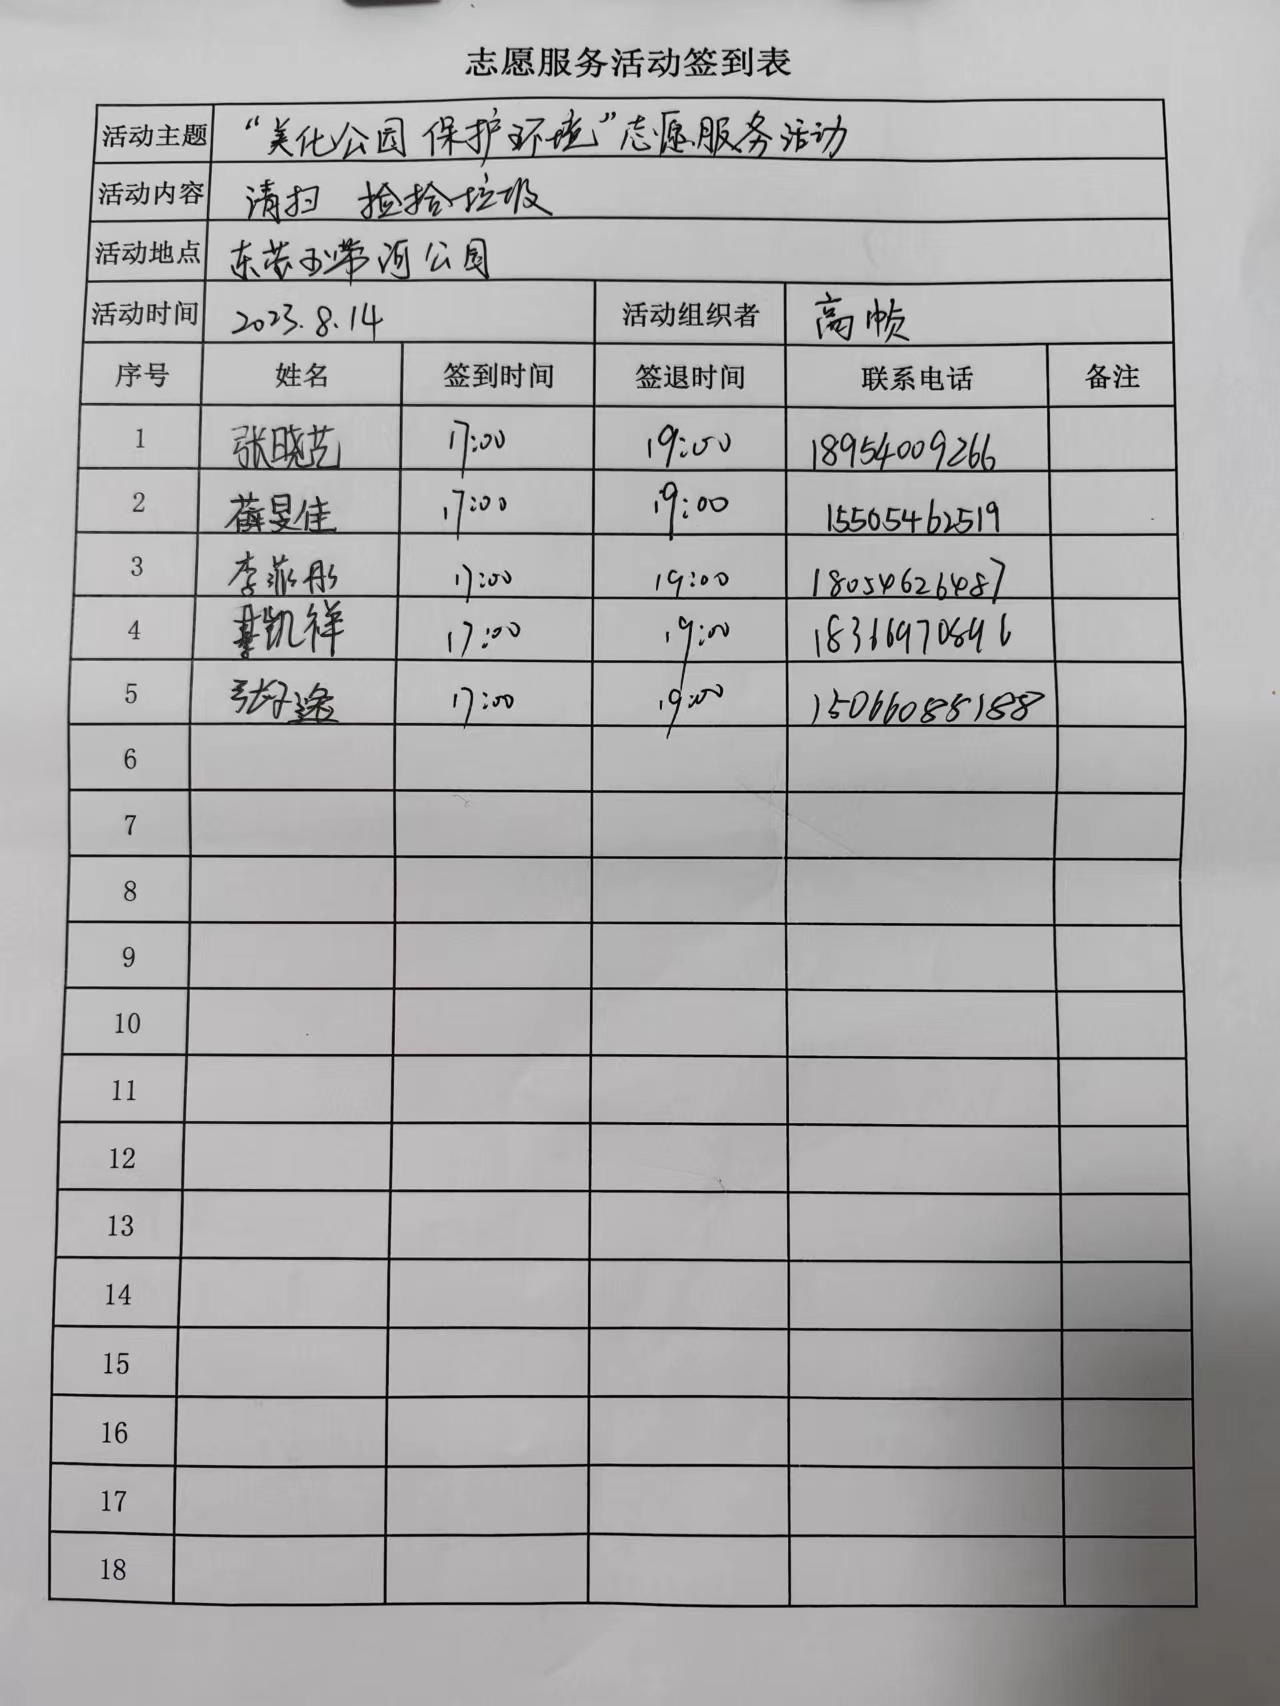 志愿服务活动签到表
活动主题 “美化公园 保护环境”志愿服务活动
活动内容 清扫 捡拾垃圾
活动地点 东营玉带河公园
活动时间 2023.8.14 活动组织者 高帧
序号 姓名 签到时间 签退时间 联系电话 备注
1 张晓艺 17:00 19:00 18954009266
2 薛旻佳 17:00 19:00 15505462519
3 李菲彤 17:00 19:00 18054626487
4 綦凯祥 17:00 19:00 18366970896
5 张子途 17:00 19:00 15066088188
6
7
8
9
10
11
12
13
14
15
16
17
18